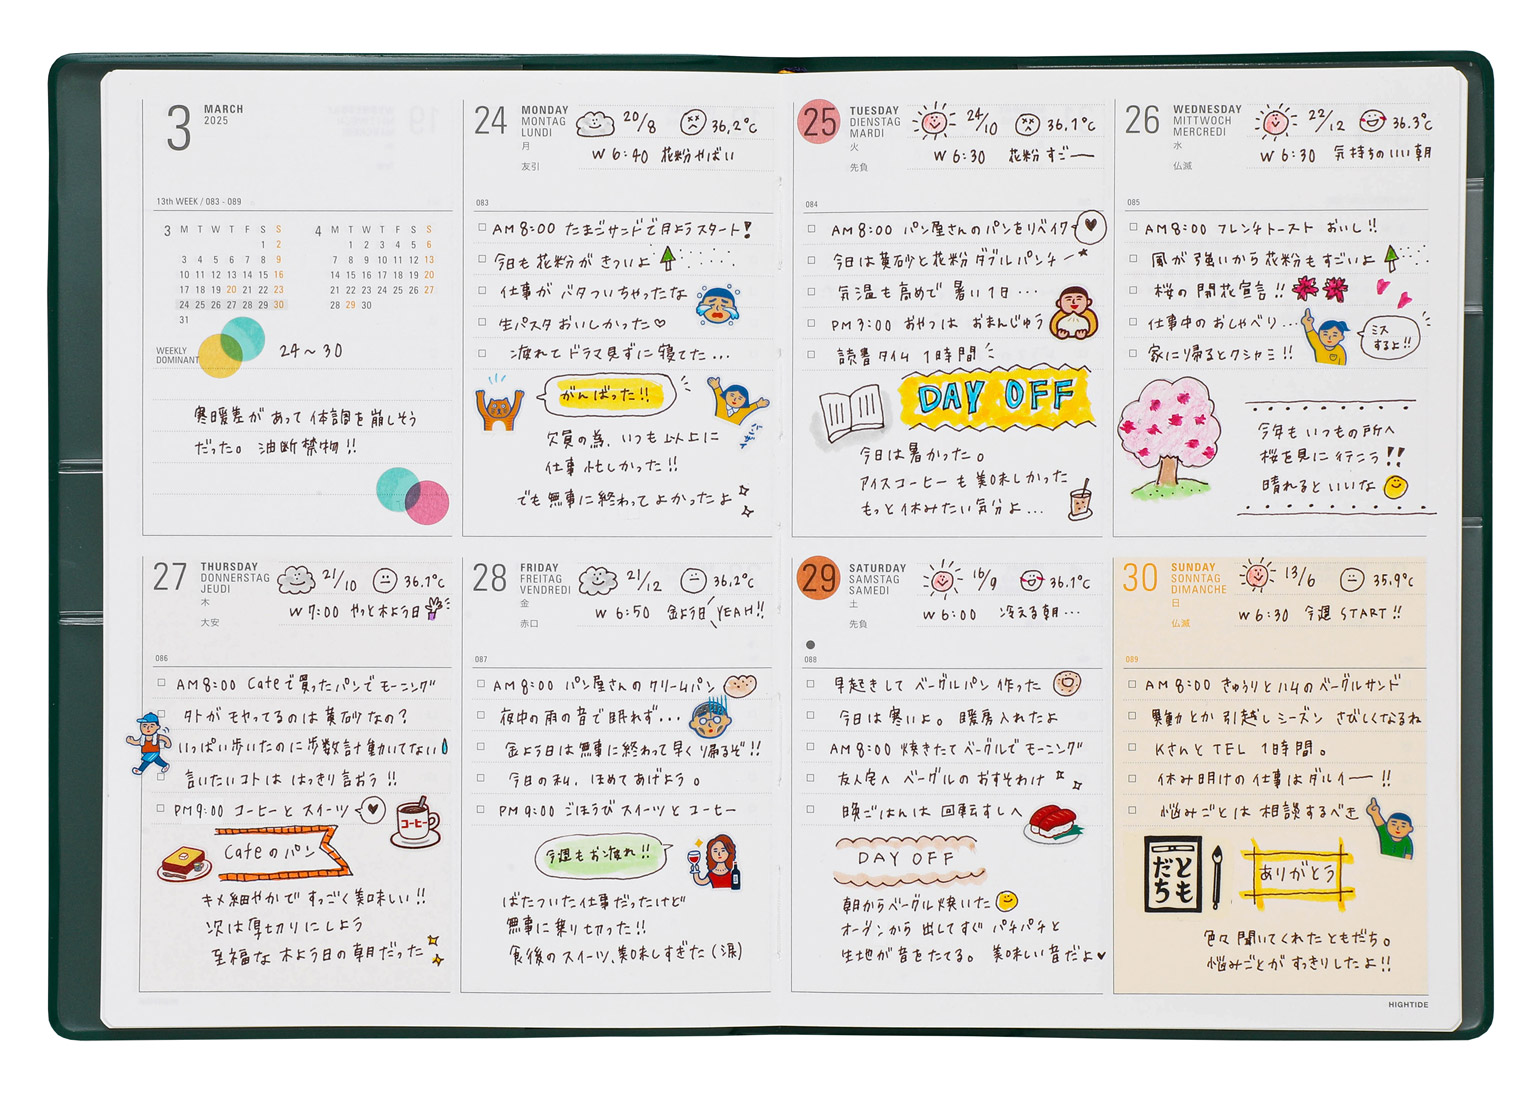 3
MARCH
2025
13th WEEK / 083 - 089
3 M T W T F S S
1 2
3 4 5 6 7 8 9
10 11 12 13 14 15 16
17 18 19 20 21 22 23
24 25 26 27 28 29 30
31
4 M T W T F S S
1 2 3 4 5 6
7 8 9 10 11 12 13
14 15 16 17 18 19 20
21 22 23 24 25 26 27
28 29 30
WEEKLY
DOMINANT
24〜30
寒暖差があって体調を崩しそう
だった。油断禁物!!
24
MONDAY
MONTAG
LUNDI
月
友引
20/8 36,2℃
W 6:40 花粉やばい
083
AM8:00 たまごサンドで月ようスタート!
今日も花粉がきついよ
仕事がバタついちゃったな
生パスタおいしかった♡
疲れてドラマ見ずに寝てた...
がんばった!!
欠員の為、いつも以上に
仕事忙しかった!!
でも無事に終わってよかったよ
25
TUESDAY
DIENSTAG
MARDI
火
先負
24/10 36,1℃
W 6:30 花粉すごー
084
AM8:00 パン屋さんのパンをリベイク
今日は黄砂と花粉ダブルパンチー
気温も高めで暑い1日...
PM3:00 おやつは おまんじゅう
読書タイム 1時間
DAY OFF
今日は暑かった。
アイスコーヒーも美味しかった
もっと休みたい気分よ...
26
WEDNESDAY
MITTWOCH
MERCREDI
水
仏滅
22/12 36.3℃
W 6:30 気持ちのいい朝
085
AM8:00 フレンチトースト おいし!!
風が強いから花粉もすごいよ
桜の開花宣言!!
仕事中のおしゃべり...
ミス
するよ!!
家に帰るとクシャミ!!
今年もいつもの所へ
桜を見に行こう!!
晴れるといいな
27
THURSDAY
DONNERSTAG
JEUDI
木
大安
21/10 36.1℃
W 7:00 やっと木よう日
086
AM8:00 Cafeで買ったパンでモーニング
外がモヤってるのは黄砂なの?
いっぱい歩いたのに歩数計動いてない
言いたいコトははっきり言おう!!
PM9:00 コーヒーとスイーツ
コーヒー
Cafeのパン
キメ細やかですっごく美味しい!!
次は厚切りにしよう
至福な木よう日の朝だった
28
FRIDAY
FREITAG
VENDREDI
金
赤口
21/12 36,2℃
W 6:50 金よう日 YEAH!!
087
AM8:00 パン屋さんのクリームパン
夜中の雨の音で眠れず...
金よう日は無事に終わって早く帰るぞ!!
今日の私、ほめてあげよう。
PM9:00 ごほうびスイーツとコーヒー
今週もお疲れ!!
ばたついた仕事だったけど
無事に乗り切った!!
食後のスイーツ、美味しすぎた(涙)
29
SATURDAY
SAMSTAG
SAMEDI
土
先負
16/9 36.1℃
W 6:00 冷える朝...
088
早起きして ベーグルパン作った
今日は寒いよ。暖房入れたよ
AM8:00 焼きたてベーグルでモーニング
友人宅へ ベーグルのおすそわけ
晩ごはんは 回転すしへ
DAY OFF
朝からベーグル焼いた
オーブンから出してすぐ パチパチと
生地が音をたてる。美味しい音だよ♥
30
SUNDAY
SONNTAG
DIMANCHE
日
仏滅
13/6 35.9℃
W 6:30 今週START!!
089
AM8:00 きゅうりとハムのベーグルサンド
異動とか引越しシーズン さびしくなるね
KさんとTEL 1時間。
休み明けの仕事はダルイー!!
悩みごとは相談するべき
ともだち
ありがとう
色々聞いてくれたともだち。
悩みごとがすっきりしたよ!!
HIGHTIDE